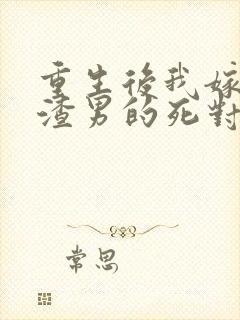 重生後我嫁
渣男的死對
常思